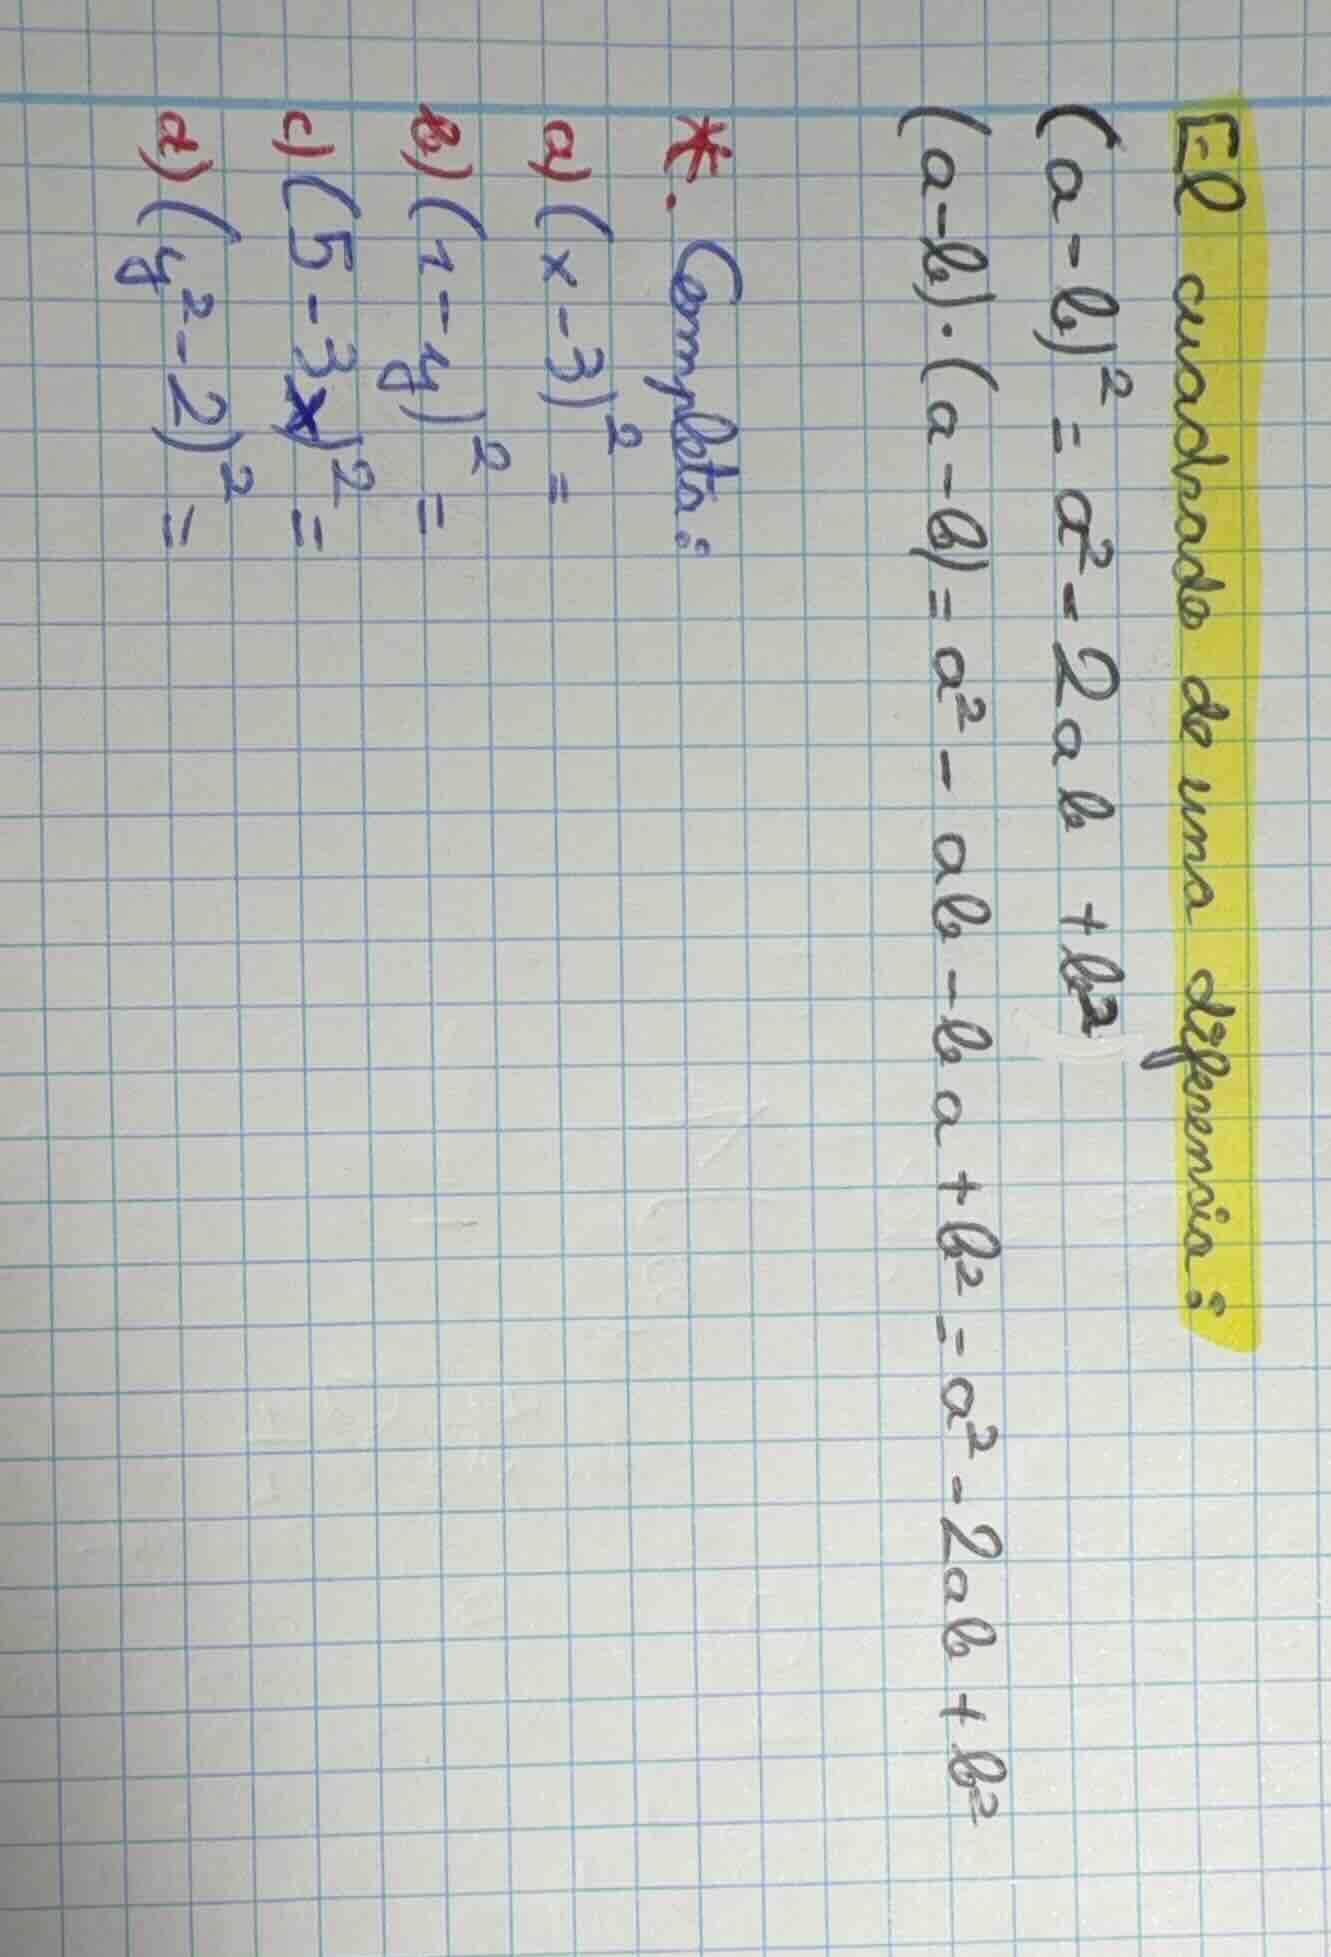 El cuadrado de una diferensia:
(a-b)² = a² - 2ab + b²
(a-b)·(a-b) = a² - ab - ba + b² = a² - 2ab + b²
*. Completa:
a) (x-3)² =
b) (1-y)² =
c) (5-3x)² =
d) (y²-2)² =